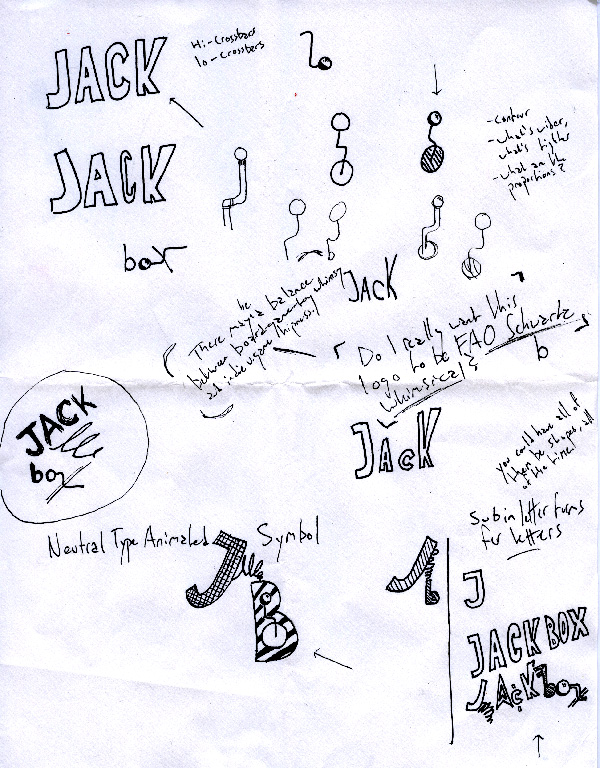 JACK
Hi-Crossbars
lo-Crossbars
JACK
-Contour
-what's wider,
what's tighter
-what are the
proportions?
box
JACK
There may be a balance
between
Do I really want this
logo to be FAO Schwartz
whimsical?
b
JACK
box
JACK
you could have all of
them be shapes, all
of the time!
Sub in letter forms
for letters
Neutral Type Animated Symbol
J
B
J
J
JACK BOX
JACK box